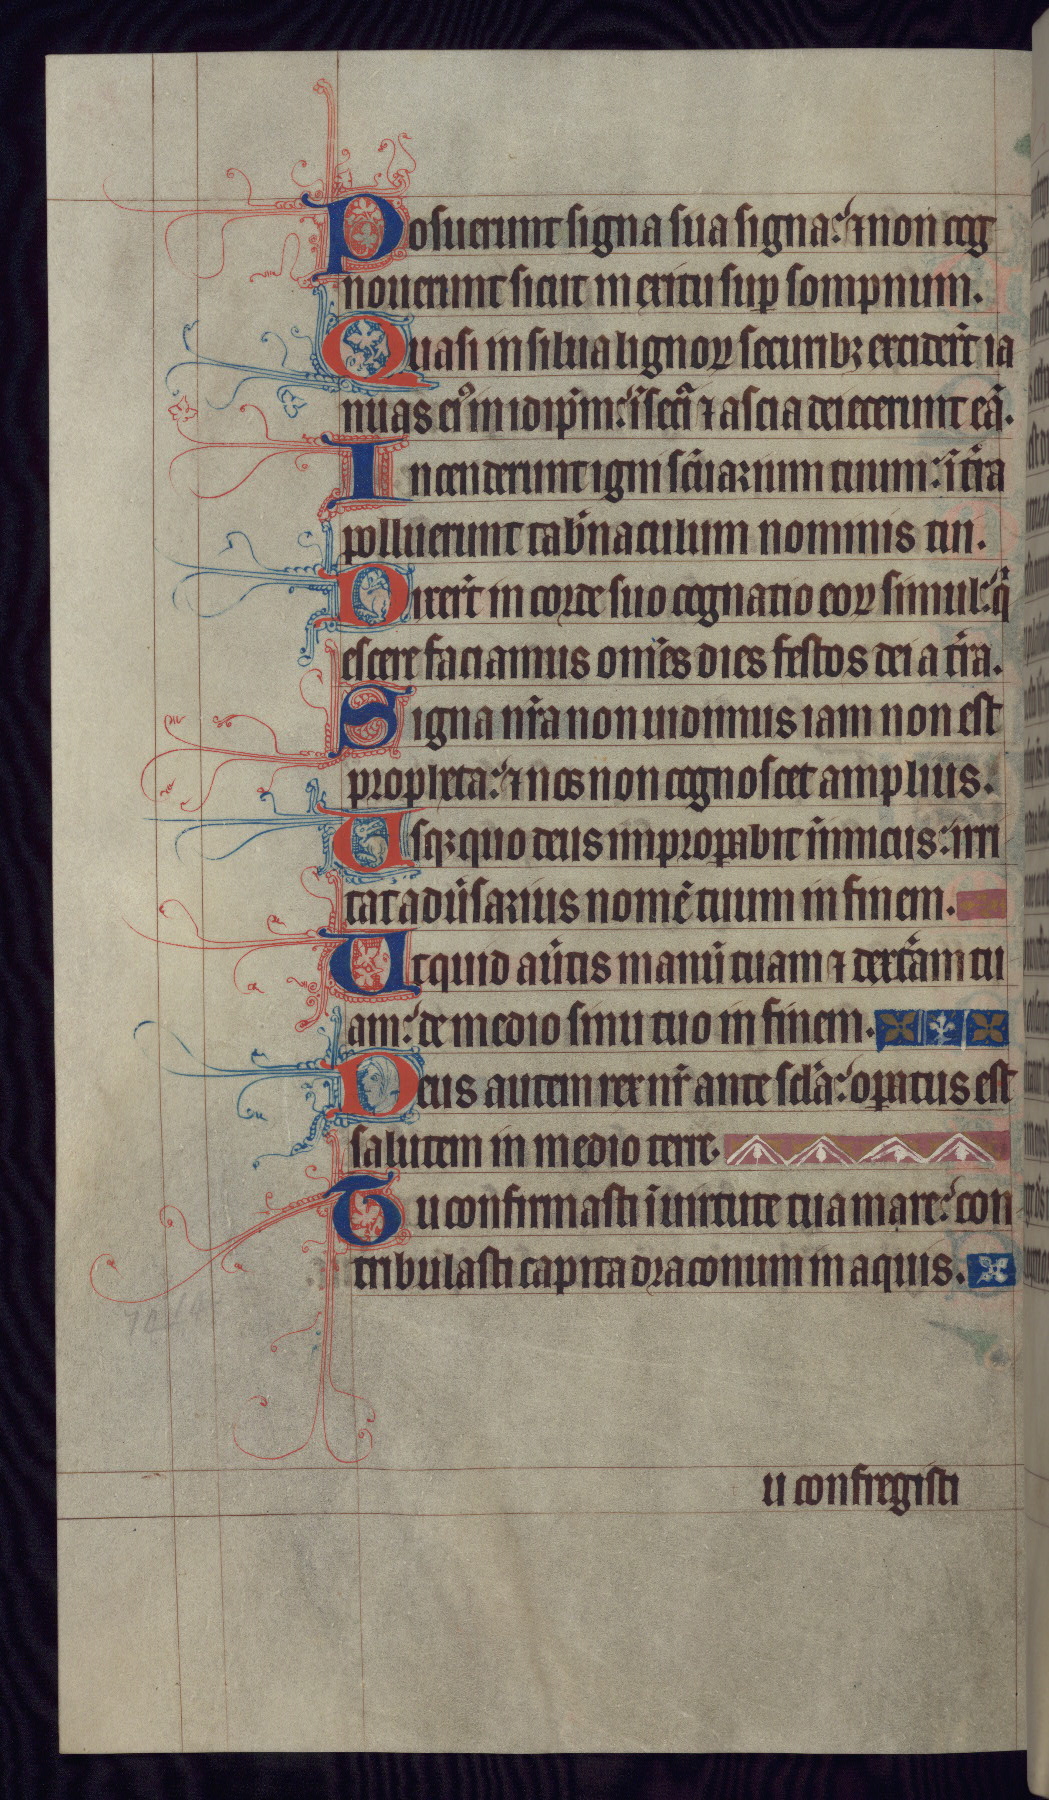 Posuerunt signa sua signa: ⁊ non cog
nouerunt sicut in exitu sup̱ sompnum.
Quasi in silua lignoꝝ securibꝫ exciderῖt ia
nuas eiꝰ in idip̄m: ῑ secū ⁊ ascia deiecerunt eā.
Incenderunt igni scūarium tuum: ῑ t̄ra
polluerunt tab̄naculum nominis tui.
Dixer̄t in corde suo cognatio eoꝝ simul: q̄
escere faciamus om̄es dies festos dei a t̄ra.
Signa nr̄a non uidimus iam non est
propheta: ⁊ nos non cognoscet amplius.
Usqꝫ quo deus improꝑabit inimicus: irri
tat adūsarius nomē tuum in finem.
Utquid aūtis manū tuam ⁊ dext̄am tu
am: de medio sinu tuo in finem.
Deus autem rex nr̄ ante scl̄a: oꝑatus est
salutem in medio terre.
Tu confirmasti ῑ uirtute tua mare: con
tribulasti capita draconum in aquis.
u confregisti